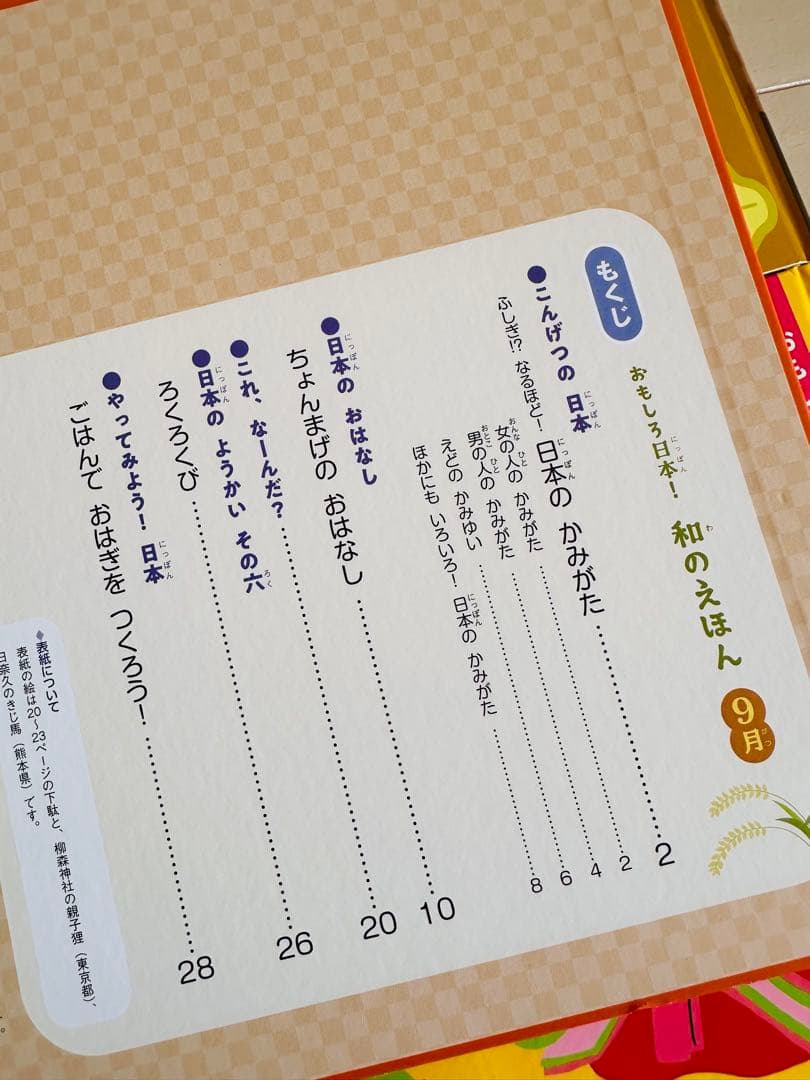 もくじ
おもしろ日本！ 和のえほん 9月
●こんげつの 日本
ふしぎ!? なるほど！ 日本の かみがた……2
女の人の かみがた……2
男の人の かみがた……4
えどの かみゆい……6
ほかにも いろいろ！ 日本の かみがた……8
●日本の おはなし
ちょんまげの おはなし……10
●これ、なーんだ？……20
●日本の ようかい その六
ろくろくび……26
●やってみよう！ 日本
ごはんで おはぎを つくろう！……28
◆表紙について
表紙の絵は20〜23ページの下駄と、柳森神社の親子狸（東京都）、
日奈久のきじ馬（熊本県）です。